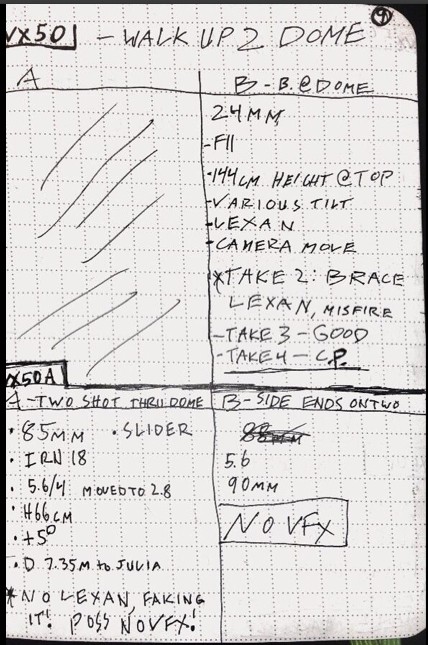 VX50 - WALK UP 2 DOME
9
A
B - B.@DOME
24MM
-F11
-144CM HEIGHT @TOP
-VARIOUS TILT
-LEXAN
-CAMERA MOVE
*TAKE 2: BRACE
LEXAN, MISFIRE
-TAKE 3 - GOOD
-TAKE 4 - C.P.
VX50A
A - TWO SHOT THRU DOME
• 85MM • SLIDER
• IRN 18
• 5.6/4 MOVED TO 2.8
• H66CM
• +5°
• D 7.35M to JULIA
* NO LEXAN, FAKING
IT! POSS NO VFX!
B - SIDE ENDS ON TWO
5.6
90MM
NO VFX